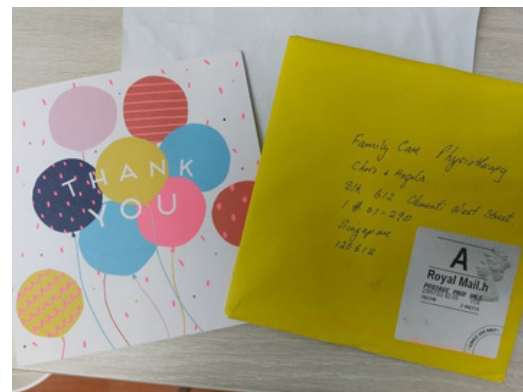 THANK
YOU
Family Care Physiotherapy
Chris & Angela
Blk 612 Clementi West Street
1 # 01-290
Singapore
120612
A
Royal Mail.h
POSTAGE PAID UK